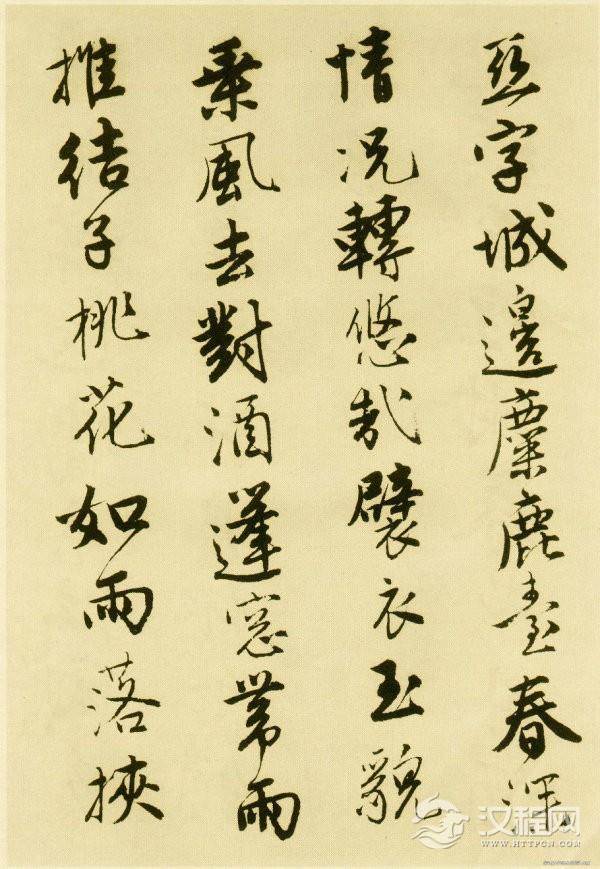 亞字城邊麋鹿臺春深
情況轉悠哉襞衣玉貌
乗風去對酒蓬窓帶雨
推結子桃花如雨落挾
汉程网
WWW.HTTPCN.COM